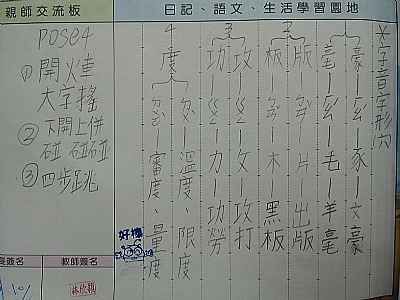 親師交流板
日記、語文、生活學習園地
POSE4
①開火車
大字搖
②下開上併
碰 碰碰
③四步跳
*字音字形
豪 豕 文豪
毫 毛 羊毫
2
版 出版
板 木 黑板
3
攻 ㄍㄨㄥ 攵 攻打
功 ㄍㄨㄥ 力 功勞
4
度 ㄉㄨˋ 溫度、限度
審度、量度
好棒
簽名
教師簽名